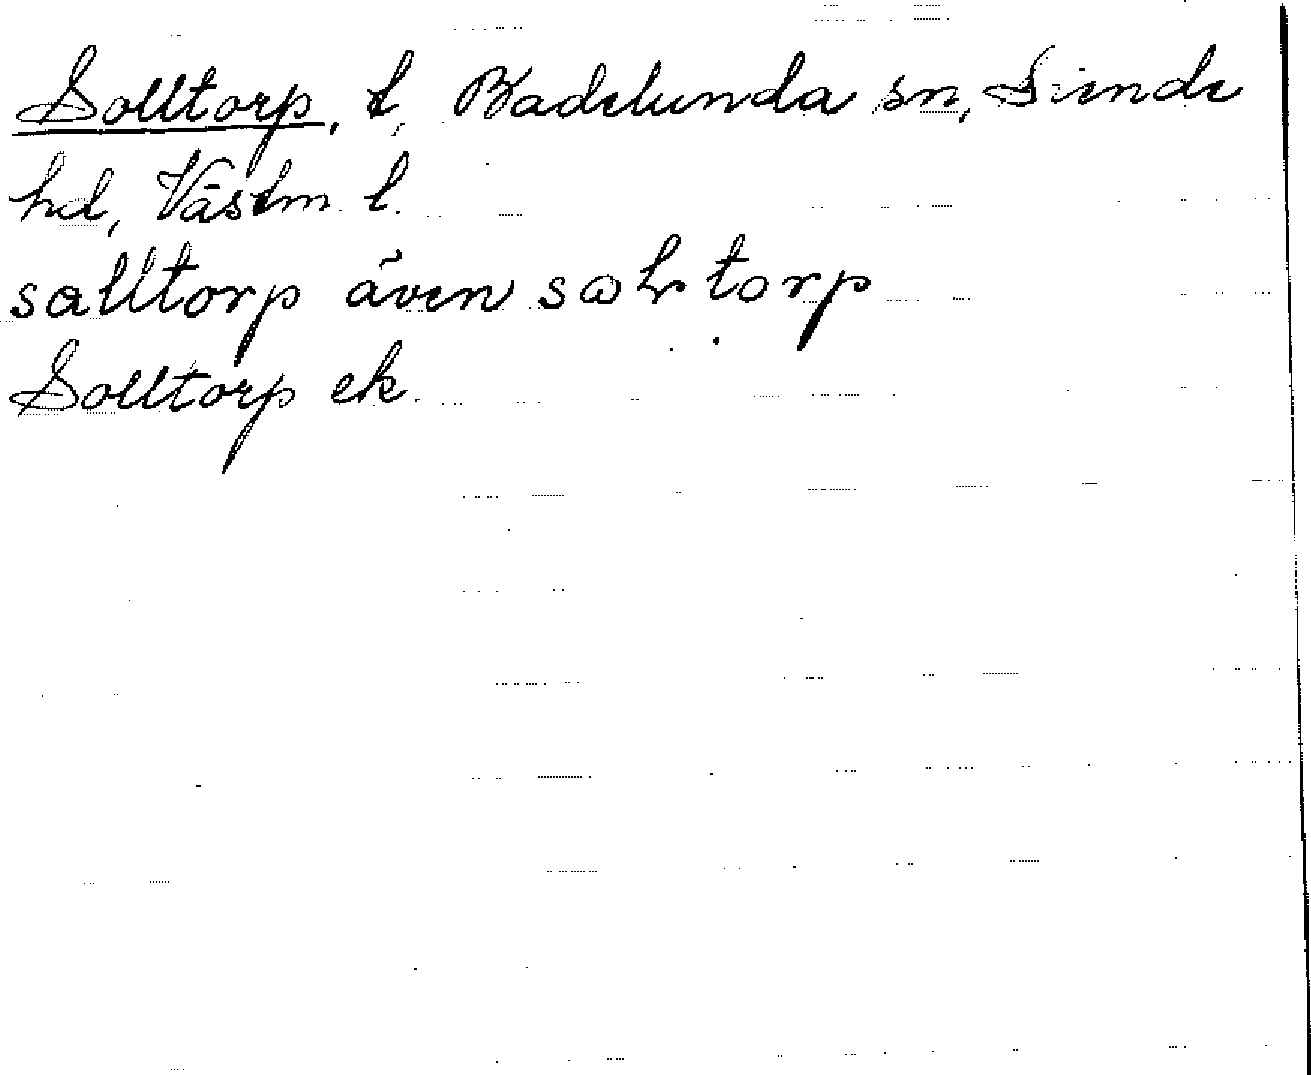 Solltorp, t, Badelunda sn, Siende
hd, Västm l.
salltorp även 
Solltorp ek.